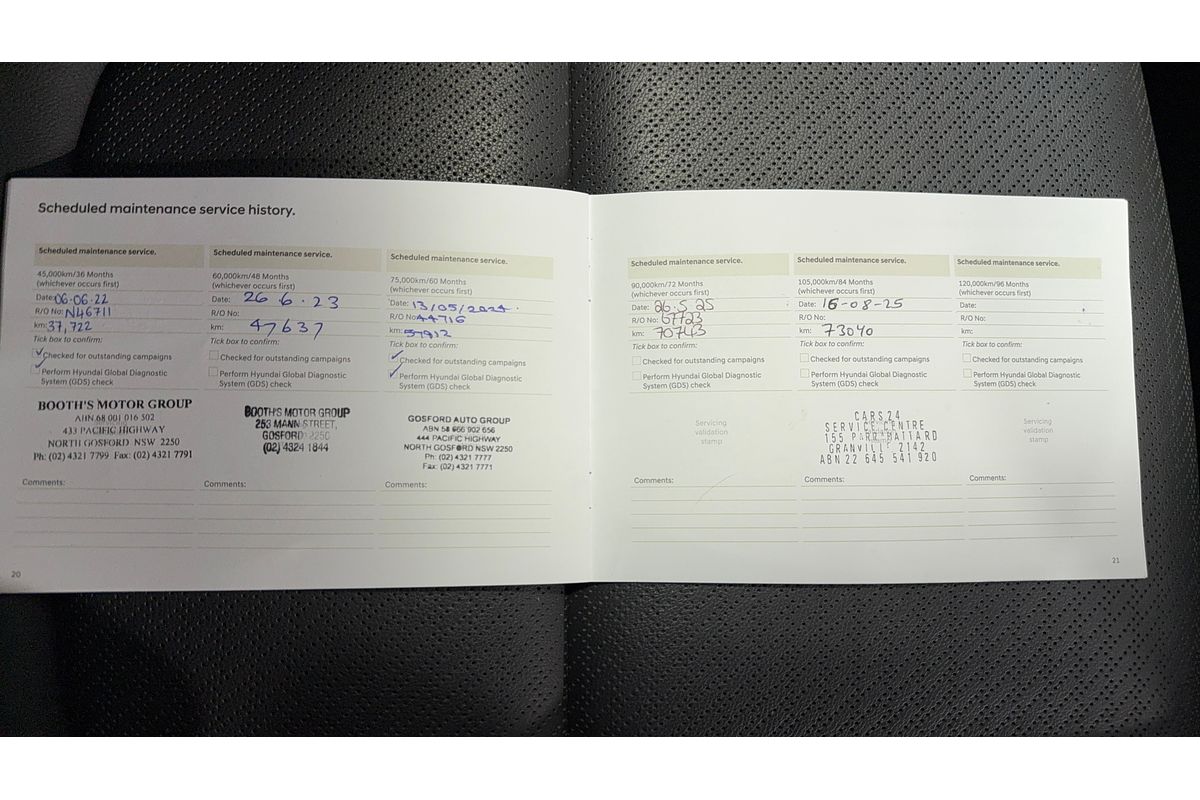 Scheduled maintenance service history.
Scheduled maintenance service.
45,000km/36 Months
(whichever occurs first)
Date: 06.06.22
R/O No: N46711
km: 37,722
Tick box to confirm:
Checked for outstanding campaigns
Perform Hyundai Global Diagnostic
System (GDS) check
BOOTH'S MOTOR GROUP
ABN 68 001 016 502
433 PACIFIC HIGHWAY
NORTH GOSFORD NSW 2250
Ph: (02) 4321 7799 Fax: (02) 4321 7791
Comments:
Scheduled maintenance service.
60,000km/48 Months
(whichever occurs first)
Date: 26.6.23
R/O No:
km: 47637
Tick box to confirm:
Checked for outstanding campaigns
Perform Hyundai Global Diagnostic
System (GDS) check
BOOTH'S MOTOR GROUP
253 MANN STREET,
GOSFORD 2250
(02) 4324 1844
Comments:
Scheduled maintenance service.
75,000km/60 Months
(whichever occurs first)
Date: 13/05/2024.
R/O No: 44716
km: 57912
Tick box to confirm:
Checked for outstanding campaigns
Perform Hyundai Global Diagnostic
System (GDS) check
GOSFORD AUTO GROUP
ABN 58 666 902 656
444 PACIFIC HIGHWAY
NORTH GOSFORD NSW 2250
Ph: (02) 4321 7777
Fax: (02) 4321 7771
Comments:
20
Scheduled maintenance service.
90,000km/72 Months
(whichever occurs first)
Date: 26.5.25
R/O No: 67723
km: 70743
Tick box to confirm:
Checked for outstanding campaigns
Perform Hyundai Global Diagnostic
System (GDS) check
Servicing
validation
stamp
Comments:
Scheduled maintenance service.
105,000km/84 Months
(whichever occurs first)
Date: 16-08-25
R/O No:
km: 73040
Tick box to confirm:
Checked for outstanding campaigns
Perform Hyundai Global Diagnostic
System (GDS) check
CARS24
SERVICE CENTRE
155 PARRAMATTARD
GRANVILLE 2142
ABN 22 645 541 920
Comments:
Scheduled maintenance service.
120,000km/96 Months
(whichever occurs first)
Date:
R/O No:
km:
Tick box to confirm:
Checked for outstanding campaigns
Perform Hyundai Global Diagnostic
System (GDS) check
Servicing
validation
stamp
Comments:
21